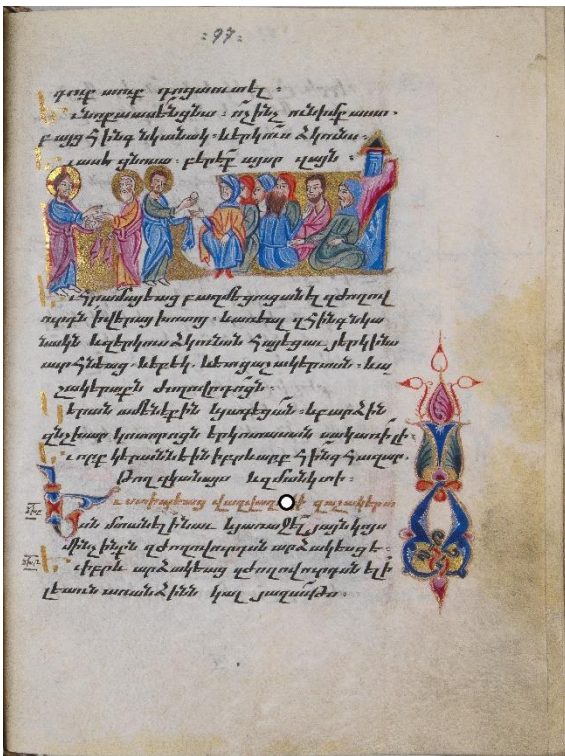 97
դուք տուք դոցա ուտել։
Եւ նոքա ասեն ցնա. ոչինչ ունիմք աստ.
բայց հինգ նկանակ. և երկուս ձկունս։
Եւ ասէ ցնոսա. բերէք այսր զայն։
Եւ հրամայեաց բազմեցուցանել զժողով
ուրդն ի վերայ խոտոյ. և առեալ զհինգ նկա
նակն և զերկուս ձկունսն հայեցաւ յերկինս
օրհնեաց. և եբեկ. և ետ ցաշակերտսն. և աշ
ակերտքն ժողովրդոցն։
Կերան ամենեքին և յագեցան. և բարձին
զնշխար կոտորոցն երկոտասան սակառի լի.
Եւ որք կերանն էին իբրև արք հինգ հազար.
Թող զկանայս և զմանկտի։
Եւ ստիպեաց վաղվաղակի զաշակերտ
սն մտանել ի նաւ և յառաջել յայնկոյս
մինչ ինքն զժողովուրդսն արձակեսցէ։
Եւ իբրև արձակեաց զժողովուրդսն ել ի
լեառն առանձինն կալ յաղօթս.